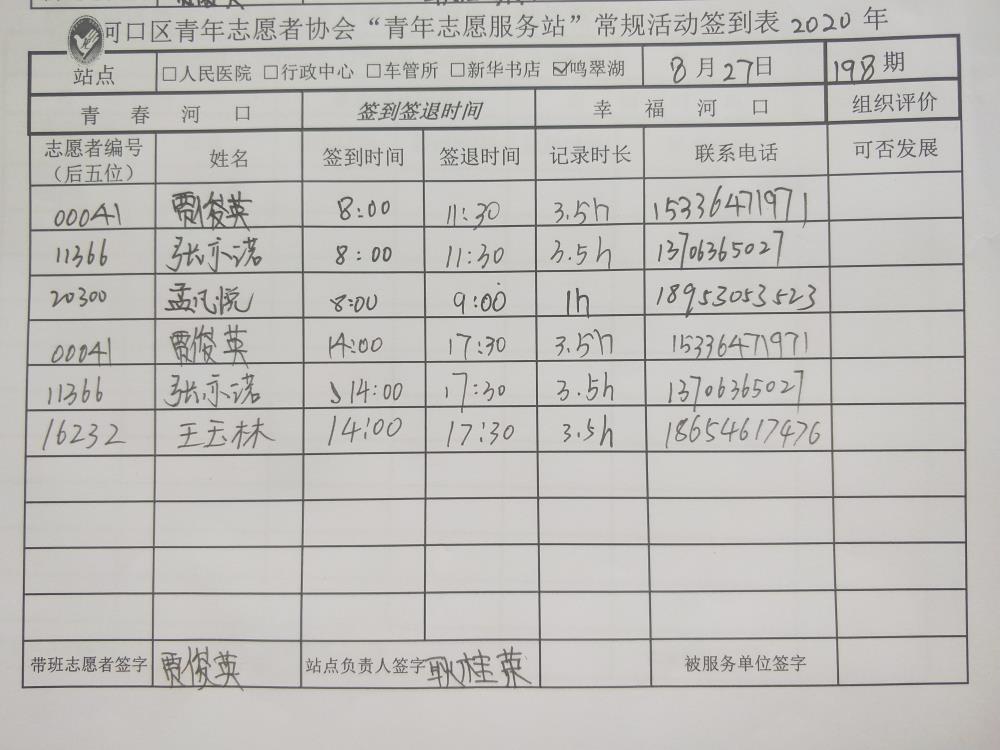 河口区青年志愿者协会“青年志愿服务站”常规活动签到表 2020 年
站点 □人民医院 □行政中心 □车管所 □新华书店 ☑鸣翠湖 8月27日 198期
青春河口 签到签退时间 幸福河口 组织评价
志愿者编号（后五位） 姓名 签到时间 签退时间 记录时长 联系电话 可否发展
00041 贾俊英 8:00 11:30 3.5h 15336471971
11366 张亦诺 8:00 11:30 3.5h 13706365027
20300 孟凡悦 8:00 9:00 1h 18953053523
00041 贾俊英 14:00 17:30 3.5h 15336471971
11366 张亦诺 14:00 17:30 3.5h 13706365027
16232 王玉林 14:00 17:30 3.5h 18654617476
带班志愿者签字 贾俊英 站点负责人签字 耿桂荣 被服务单位签字